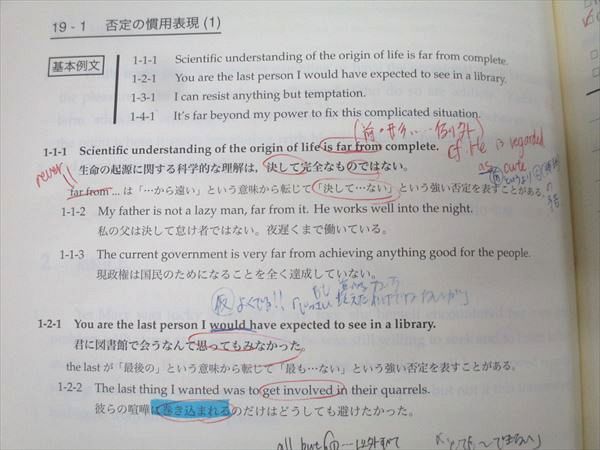 19 - 1 否定の慣用表現 (1)
基本例文
1-1-1 Scientific understanding of the origin of life is far from complete.
1-2-1 You are the last person I would have expected to see in a library.
1-3-1 I can resist anything but temptation.
1-4-1 It's far beyond my power to fix this complicated situation.
cf. He is regarded
1-1-1 Scientific understanding of the origin of life is far from complete.
as cute
生命の起源に関する科学的な理解は，決して完全なものではない。
never
far from ... は「…から遠い」という意味から転じて「決して…ない」という強い否定を表すことがある。
1-1-2 My father is not a lazy man, far from it. He works well into the night.
私の父は決して怠け者ではない。夜遅くまで働いている。
1-1-3 The current government is very far from achieving anything good for the people.
現政権は国民のためになることを全く達成していない。
仮 よくでる!!
1-2-1 You are the last person I would have expected to see in a library.
君に図書館で会うなんて思ってもみなかった。
the last が「最後の」という意味から転じて「最も…ない」という強い否定を表すことがある。
1-2-2 The last thing I wanted was to get involved in their quarrels.
彼らの喧嘩に巻き込まれるのだけはどうしても避けたかった。
all but